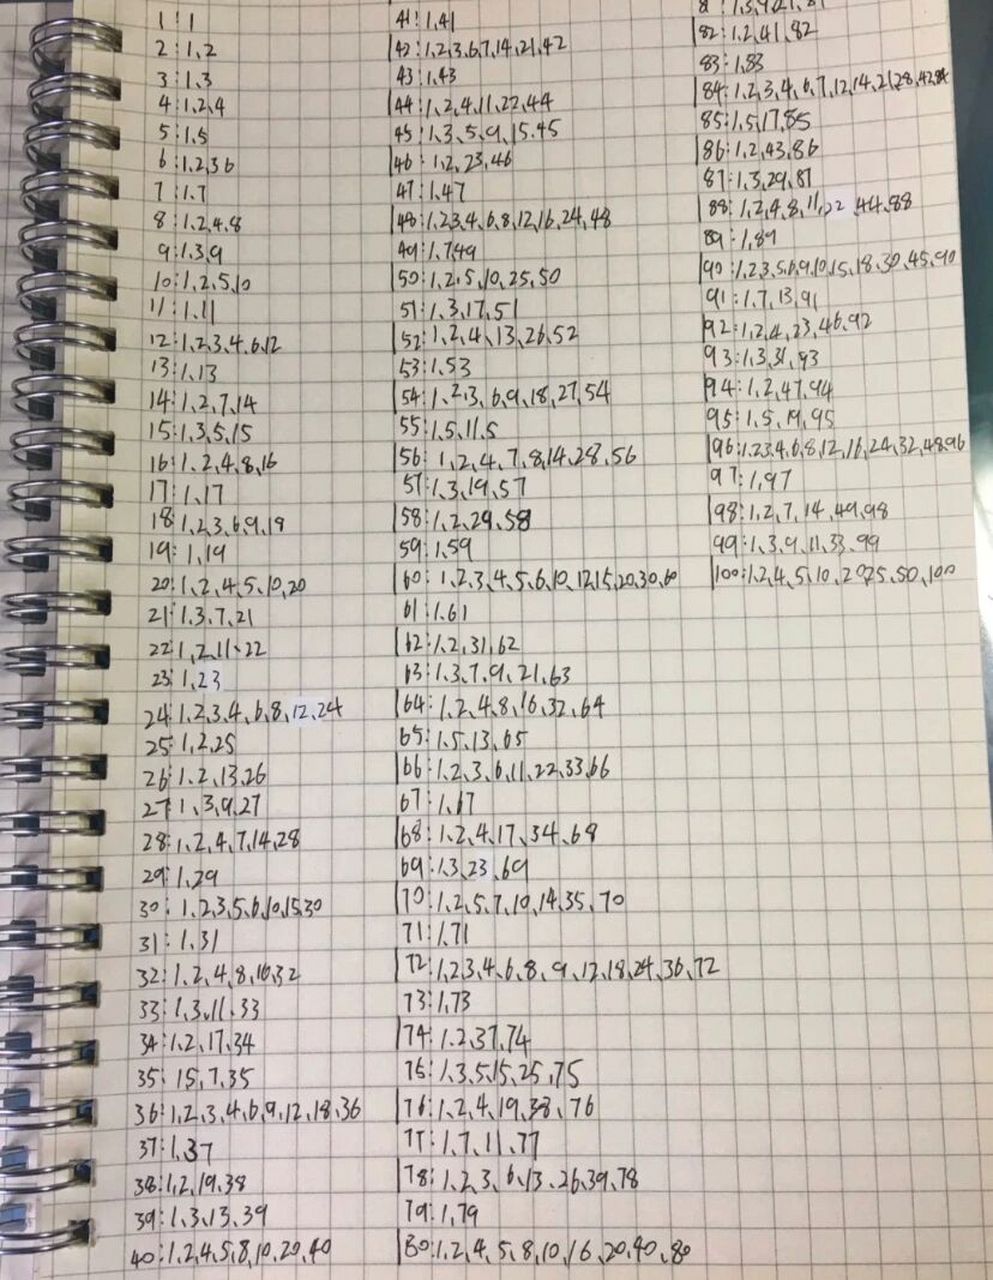 1:1
2:1、2
3:1、3
4:1、2、4
5:1、5
6:1、2、36
7:1、7
8:1、2、4、8
9:1、3、9
10:1、2、5、10
11:1、11
12:1、2、3、4、6、12
13:1、13
14:1、2、7、14
15:1、3、5、15
16:1、2、4、8、16
17:1、17
18:1、2、3、6、9、18
19:1、19
20:1、2、4、5、10、20
21:1、3、7、21
22:1、2、11、22
23:1、23
24:1、2、3、4、6、8、12、24
25:1、2、25
26:1、2、13、26
27:1、3、9、27
28:1、2、4、7、14、28
29:1、29
30:1、2、3、5、6、10、15、30
31:1、31
32:1、2、4、8、16、32
33:1、3、11、33
34:1、2、17、34
35:15、7、35
36:1、2、3、4、6、9、12、18、36
37:1、37
38:1、2、19、38
39:1、3、13、39
40:1、2、4、5、8、10、20、40
41:1、41
42:1、2、3、6、7、14、21、42
43:1、43
44:1、2、4、11、22、44
45:1、3、5、9、15、45
46:1、2、23、46
47:1、47
48:1、2、3、4、6、8、12、16、24、48
49:1、7、49
50:1、2、5、10、25、50
51:1、3、17、51
52:1、2、4、13、26、52
53:1、53
54:1、2、3、6、9、18、27、54
55:1、5、11、5
56:1、2、4、7、8、14、28、56
57:1、3、19、57
58:1、2、29、58
59:1、59
60:1、2、3、4、5、6、10、12、15、20、30、60
61:1、61
62:1、2、31、62
63:1、3、7、9、21、63
64:1、2、4、8、16、32、64
65:1、5、13、65
66:1、2、3、6、11、22、33、66
67:1、67
68:1、2、4、17、34、68
69:1、3、23、69
70:1、2、5、7、10、14、35、70
71:1、71
72:1、2、3、4、6、8、9、12、18、24、36、72
73:1、73
74:1、2、37、74
75:1、3、5、15、25、75
76:1、2、4、19、38、76
77:1、7、11、77
78:1、2、3、6、13、26、39、78
79:1、79
80:1、2、4、5、8、10、16、20、40、80
82:1、2、41、82
83:1、83
84:1、2、3、4、6、7、12、14、21、28、42、84
85:1、5、17、85
86:1、2、43、86
87:1、3、29、87
88:1、2、4、8、11、22、44、88
89:1、89
90:1、2、3、5、6、9、10、15、18、30、45、90
91:1、7、13、91
92:1、2、4、23、46、92
93:1、3、31、93
94:1、2、47、94
95:1、5、19、95
96:1、2、3、4、6、8、12、16、24、32、48、96
97:1、97
98:1、2、7、14、49、98
99:1、3、9、11、33、99
100:1、2、4、5、10、20、25、50、100